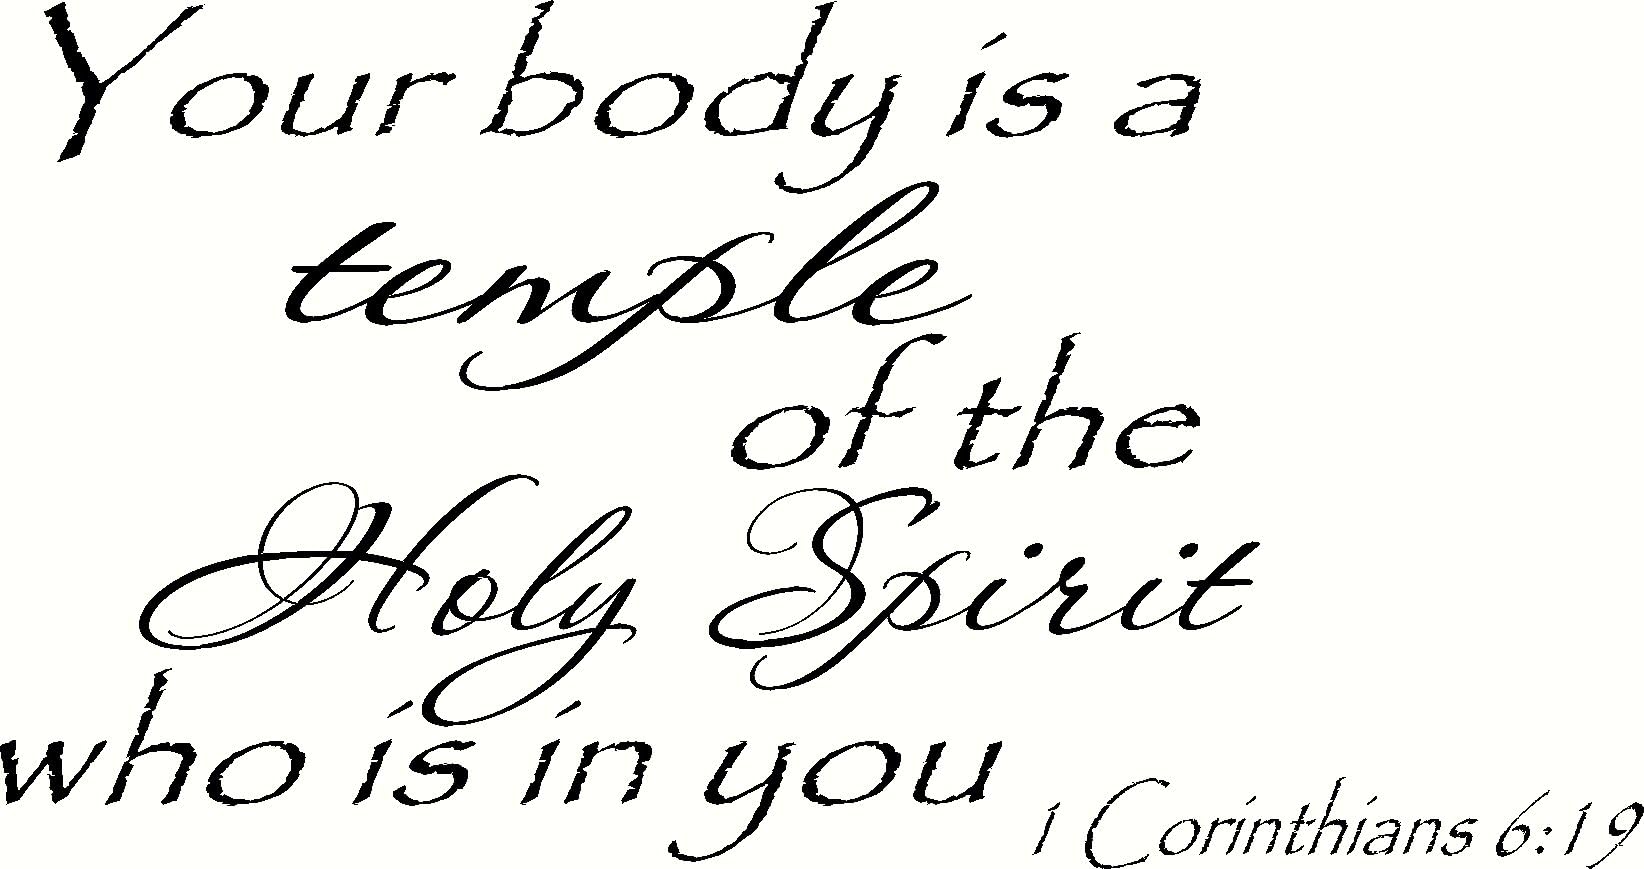 Your body is a
temple
of the
Holy Spirit
who is in you
1 Corinthians 6:19